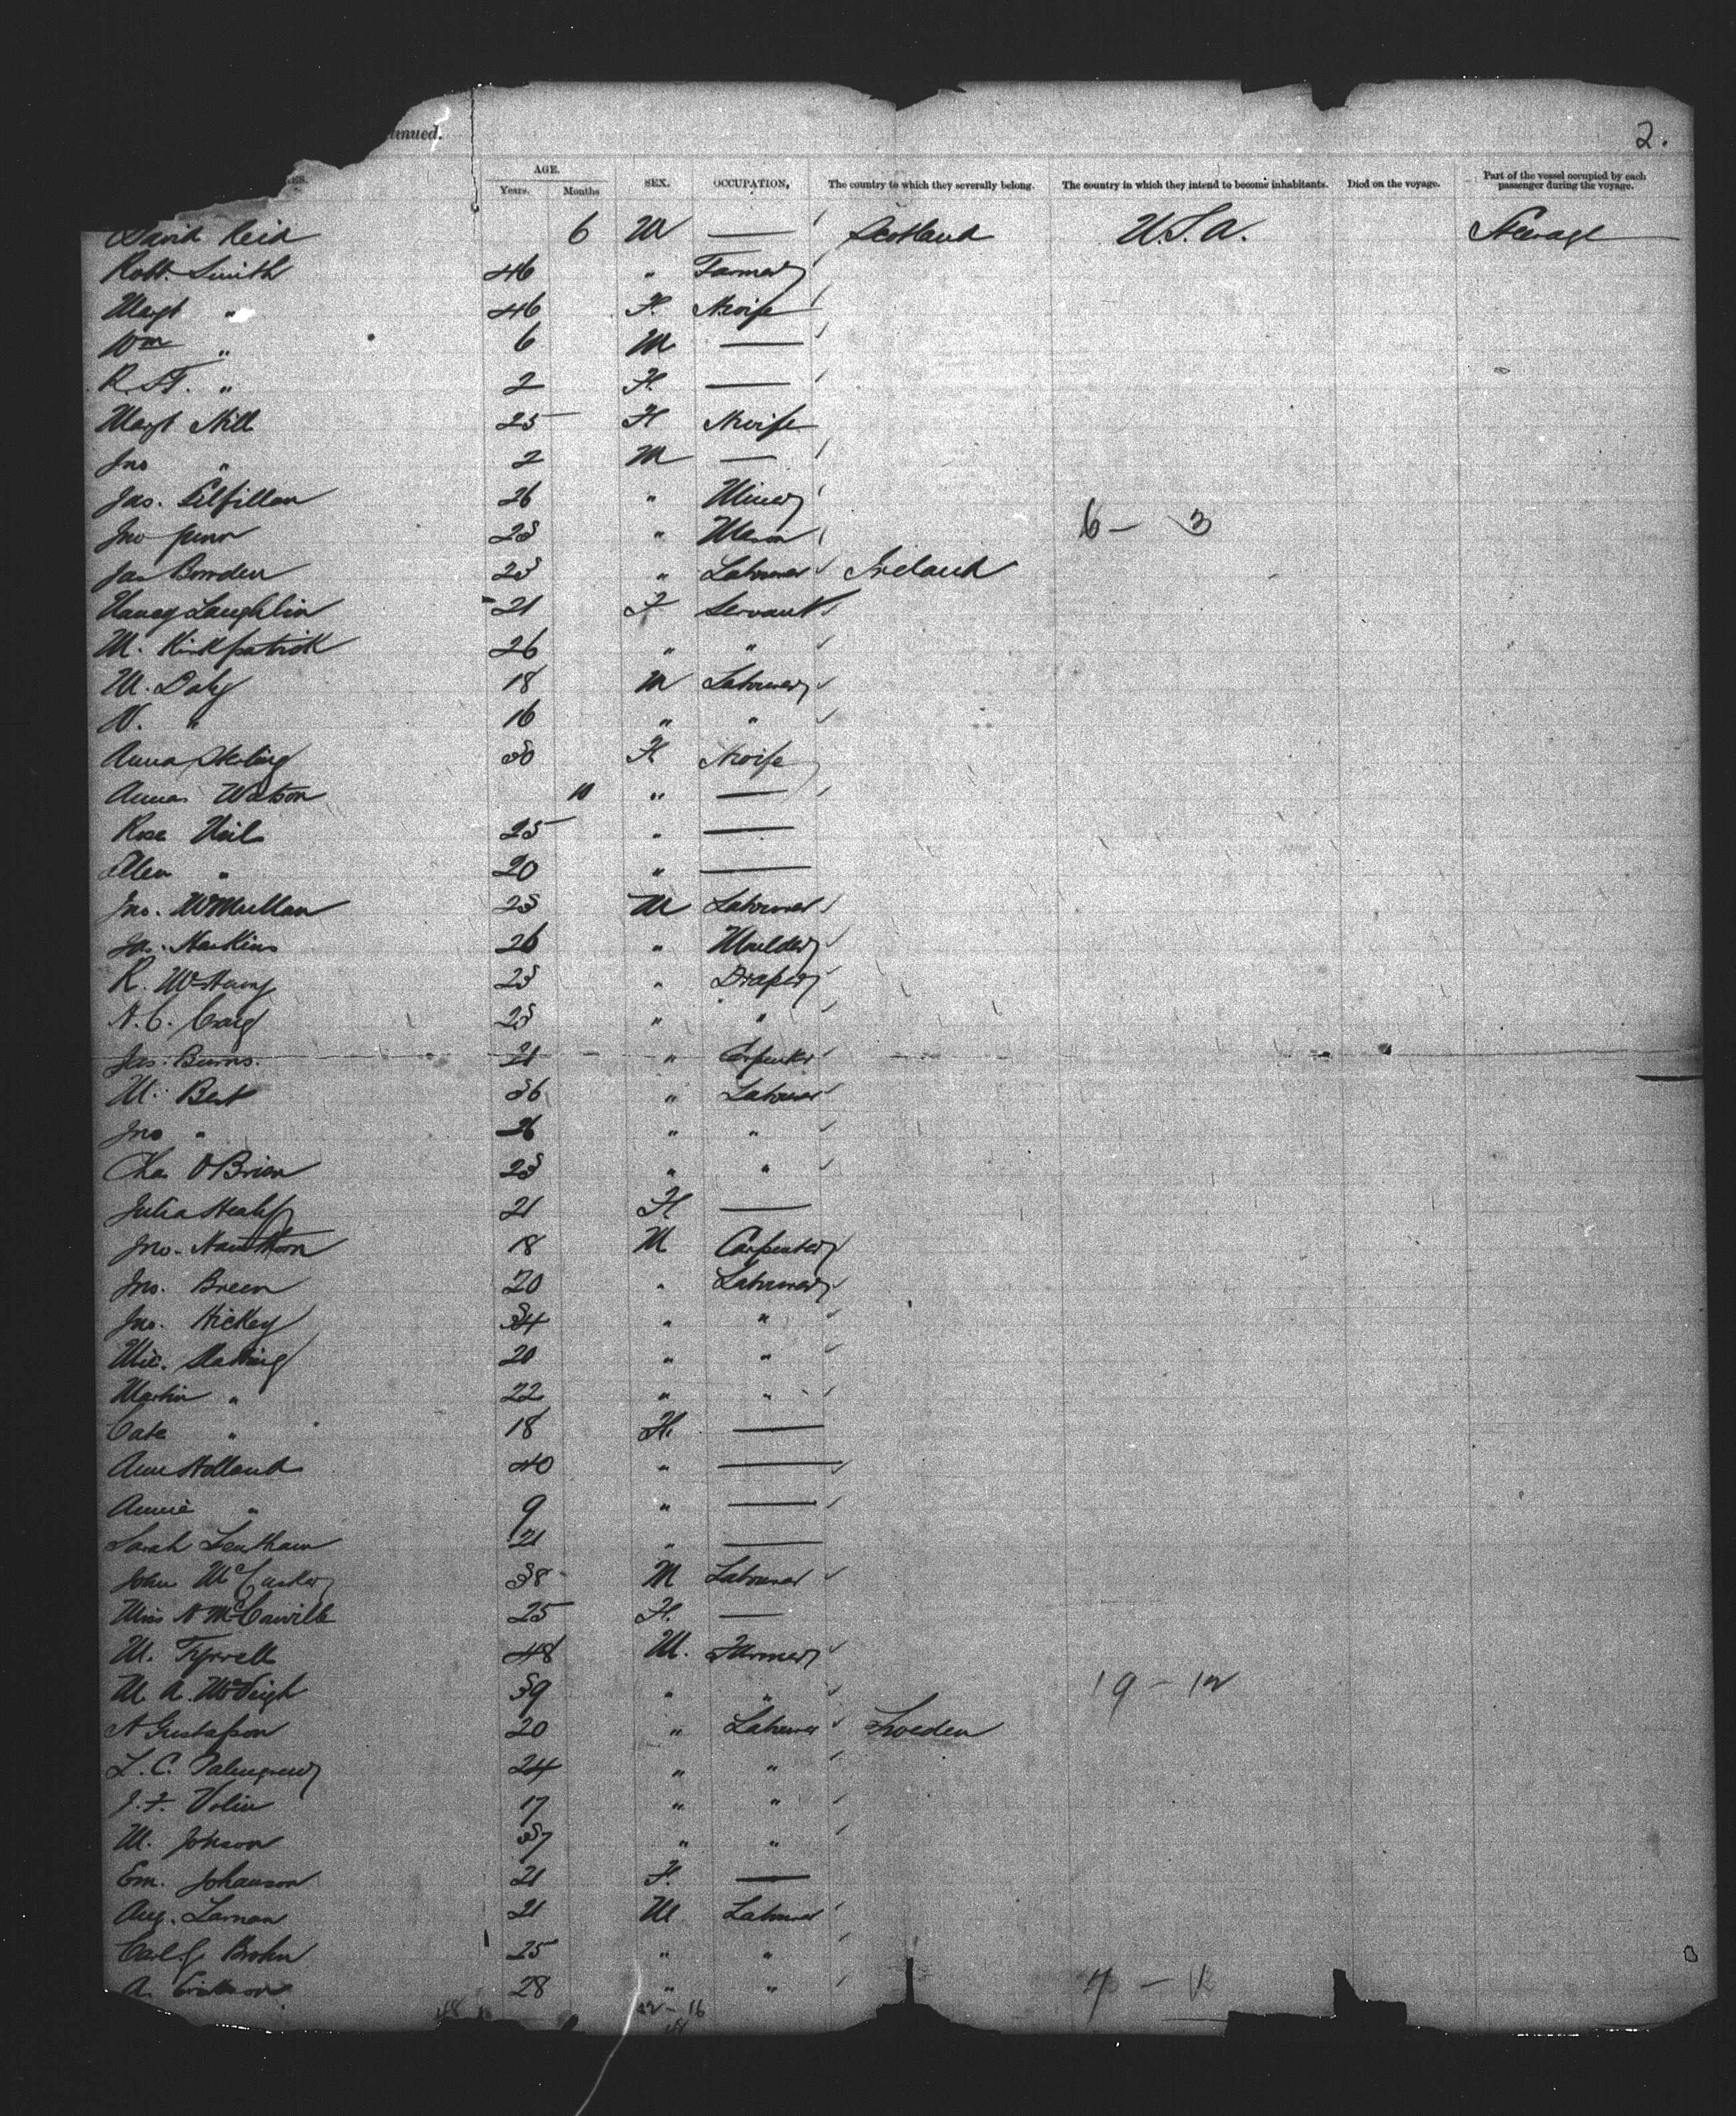 tinued. 2.
AGE.
Years. Months SEX. OCCUPATION, The country to which they severally belong. The country in which they intend to become inhabitants. Died on the voyage. Part of the vessel occupied by each passenger during the voyage.
David Reid 6 M — Scotland U.S.A. Steerage
Robt. Smith 46 " Farmer
Margt " 46 F. Hwife
Wm " 6 M —
R. " 2 F. —
Margt Hill 25 F Hwife
Jno " 2 M —
Jas. Gilfillan 26 " Miner
Jno 23 " Mason 6 - 3
Jas Bowden 23 " Labourer Ireland
Nancy Laughlin 21 F Servant
M. Kirkpatrick 26 " "
M. Daly 18 M Labourer
W. " 16 " "
Anna 30 F Hwife
Anna Watson 10 " —
Rose Neil 25 " —
Ellen " 20 " —
Jno. McMullan 23 M Labourer
Jas. Hawkins 26 " Moulder
R. 23 " Draper
H. C. Craig 23 " "
Jas. Burns. 21 " Carpenter
M. Best 36 " Labourer
Jno " 26 " "
Chas O'Brien 23 " "
Julia Healy 21 F —
Jno. Hawthorn 18 M Carpenter
Jno. Breen 20 " Labourer
Jno. Hickey 34 " "
Mic. Slattery 20 " "
Martin " 22 " "
Cate " 18 F. —
Ann Holland 40 " —
Annie " 9 " —
Sarah 21 " —
John McCusker 38 M Labourer
Miss A McCarville 25 F. —
M. Tyrrell 48 M. Farmer
M. A. McVeigh 39 " " 19 - 12
A Gustafson 20 " Labourer Sweden
L. C. Palmgren 24 " "
J. F. Volin 17 " "
M. Johnson 37 " "
Em. Johanson 21 F. —
Aug. Larson 21 M Labourer
Carl G Brohn 25 " "
A. Erickson 28 " " 7 - 1
48 32 - 16